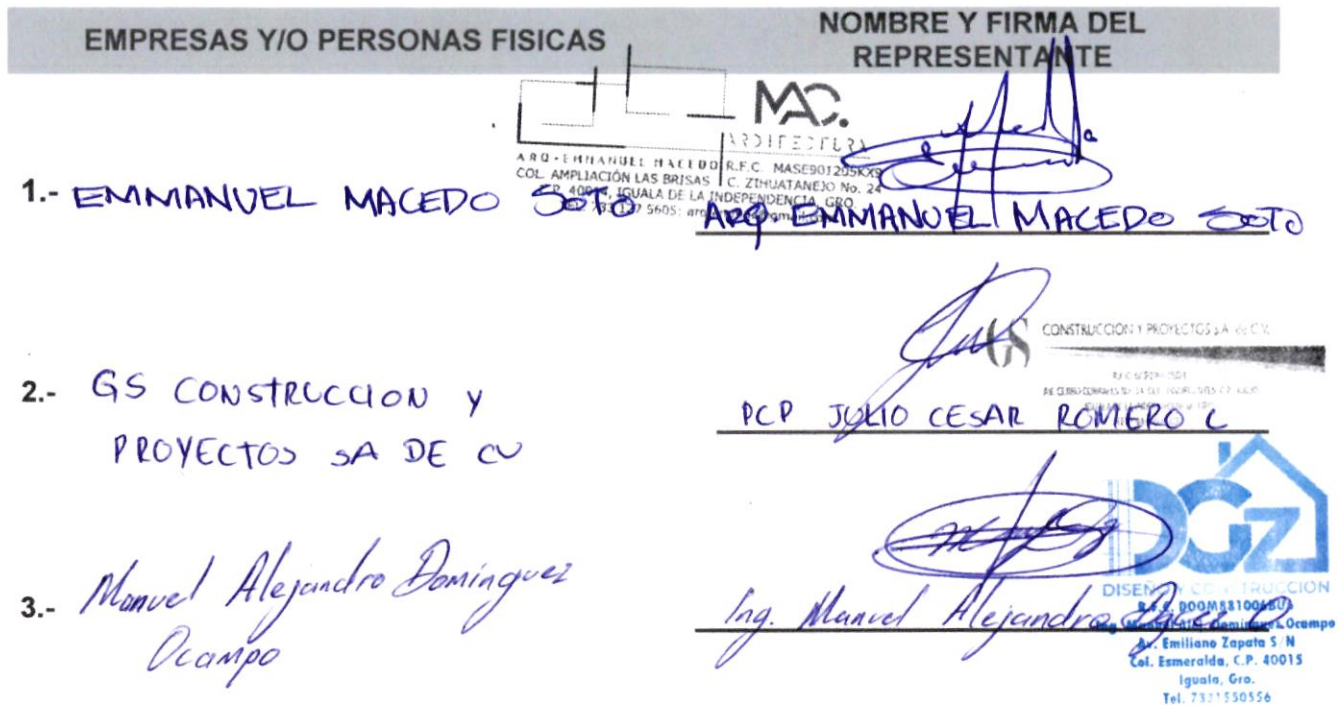 EMPRESAS Y/O PERSONAS FISICAS
NOMBRE Y FIRMA DEL
REPRESENTANTE
MAC.
ARQITECTURA
ARQ-EMMANUEL MACEDO R.F.C. MASE901205KX9
COL. AMPLIACIÓN LAS BRISAS C. ZIHUATANEJO No. 24
IGUALA DE LA INDEPENDENCIA, GRO.
1.- EMMANUEL MACEDO SOTO
ARQ. EMMANUEL MACEDO SOTO
GS CONSTRUCCION Y PROYECTOS S.A. de C.V.
2.- GS CONSTRUCCION Y
PROYECTOS SA DE CV
PCP JULIO CESAR ROMERO L
DGZ
DISEÑO Y CONSTRUCCION
3.- Manuel Alejandro Dominguez
Ocampo
Ing. Manuel Alejandro
Dominguez Ocampo
Av. Emiliano Zapata S/N
Col. Esmeralda, C.P. 40015
Iguala, Gro.
Tel. 7331550556